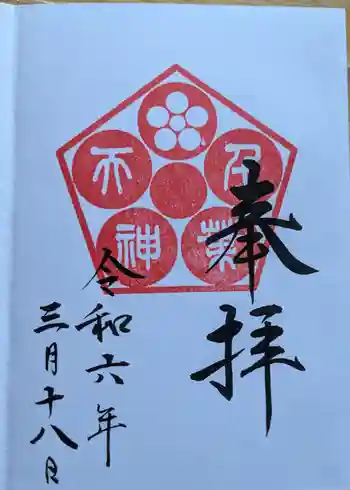 奉拝
天
神
令和六年
三月十八日